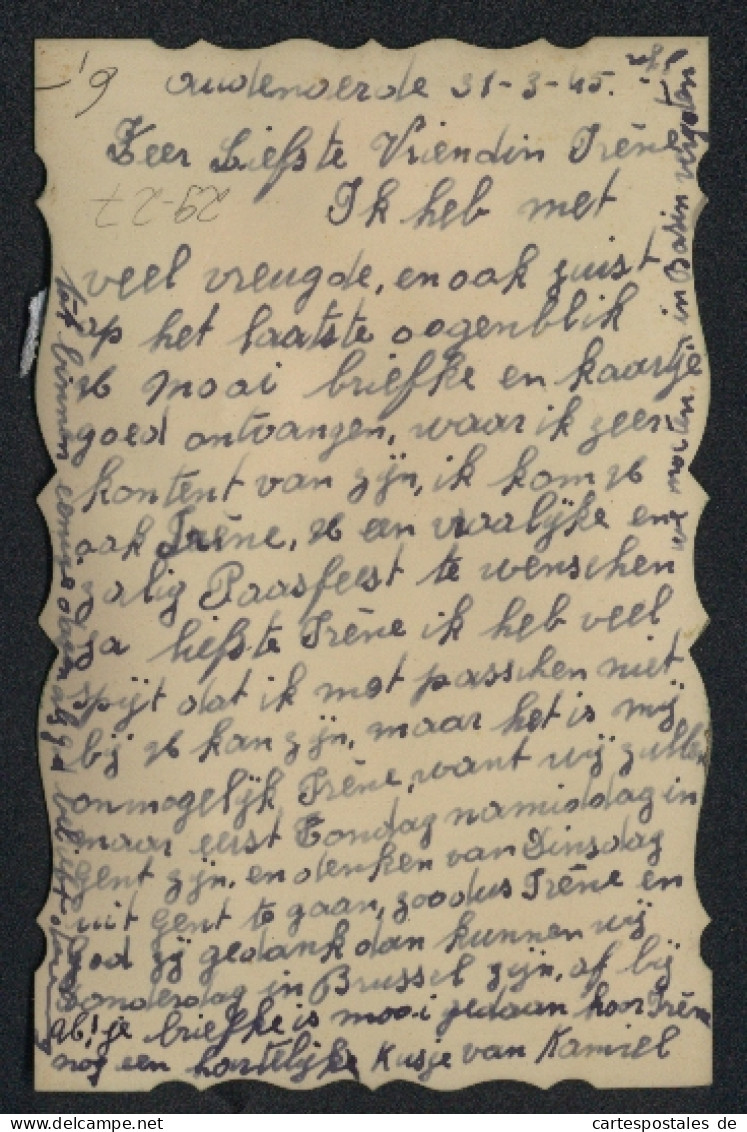 Oudenoerde 31-3-45.
Zeer Liefste Vriendin Irène
29-27
Ik heb met
veel vreugde, en ook juist
op het laatste oogenblik
U mooi briefke en kaartje
goed ontvangen, waar ik zeer
kontent van zijn, ik kom U
ook Irène, U een vroolijke en
zalig Paasfeest te wenschen
ja liefste Irène ik heb veel
spijt dat ik met passchen niet
bij U kan zijn, maar het is mij
onmogelijk Irène, want wij zullen
maar eerst Zondag namiddag in
Gent zijn, en denken van Dinsdag
uit Gent te gaan, zoodus Irène en
god zij gedank dan kunnen wij
Donderdag in Brussel zijn, of bij
U! je briefke is mooi gedaan hoor Irène
nog een hartelijke Kusje van Kamiel
tot binnen eenige dagen als god belieft
in vergeten
cartespostales de